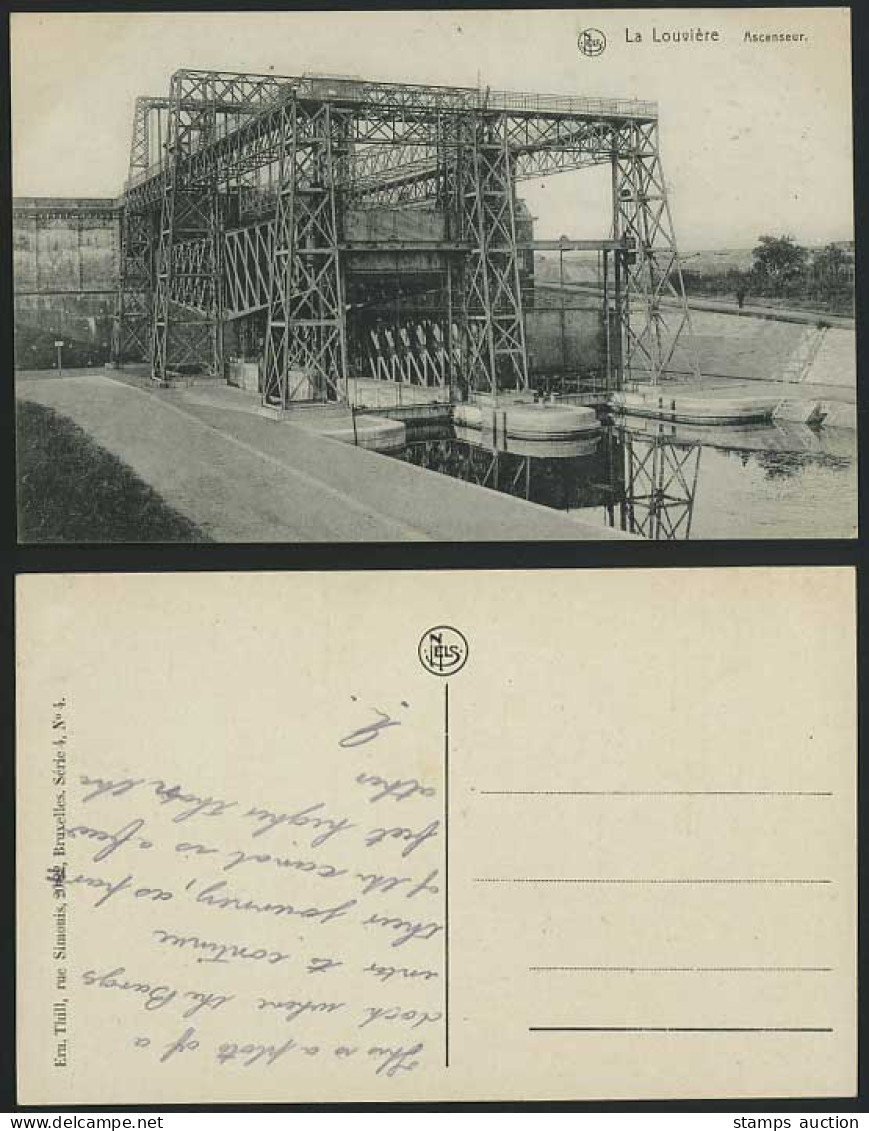 NELS
La Louvière Ascenseur.
NELS
Ern. Thill, rue Simonis, Bruxelles. Série 4, No 4.
This is a photo of a
dock where the Bargs
enter to continue
their journey, as par
of the canal is a few
feet higher than the
other
stamps auction